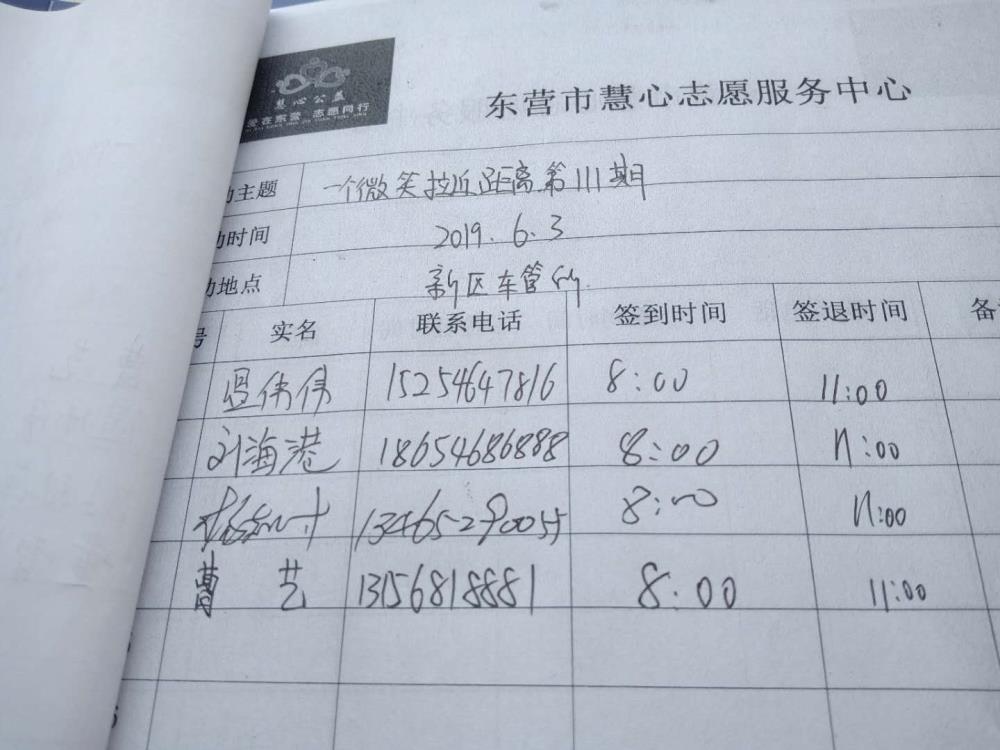 慧心公益
爱在东营 志愿同行
东营市慧心志愿服务中心
动主题 一个微笑拉近距离第111期
动时间 2019.6.3
动地点 新区车管所
号 实名 联系电话 签到时间 签退时间 备
温伟伟 15254647816 8:00 11:00
刘海港 18654686888 8:00 11:00
8:00 11:00
曹艺 13156818881 8:00 11:00